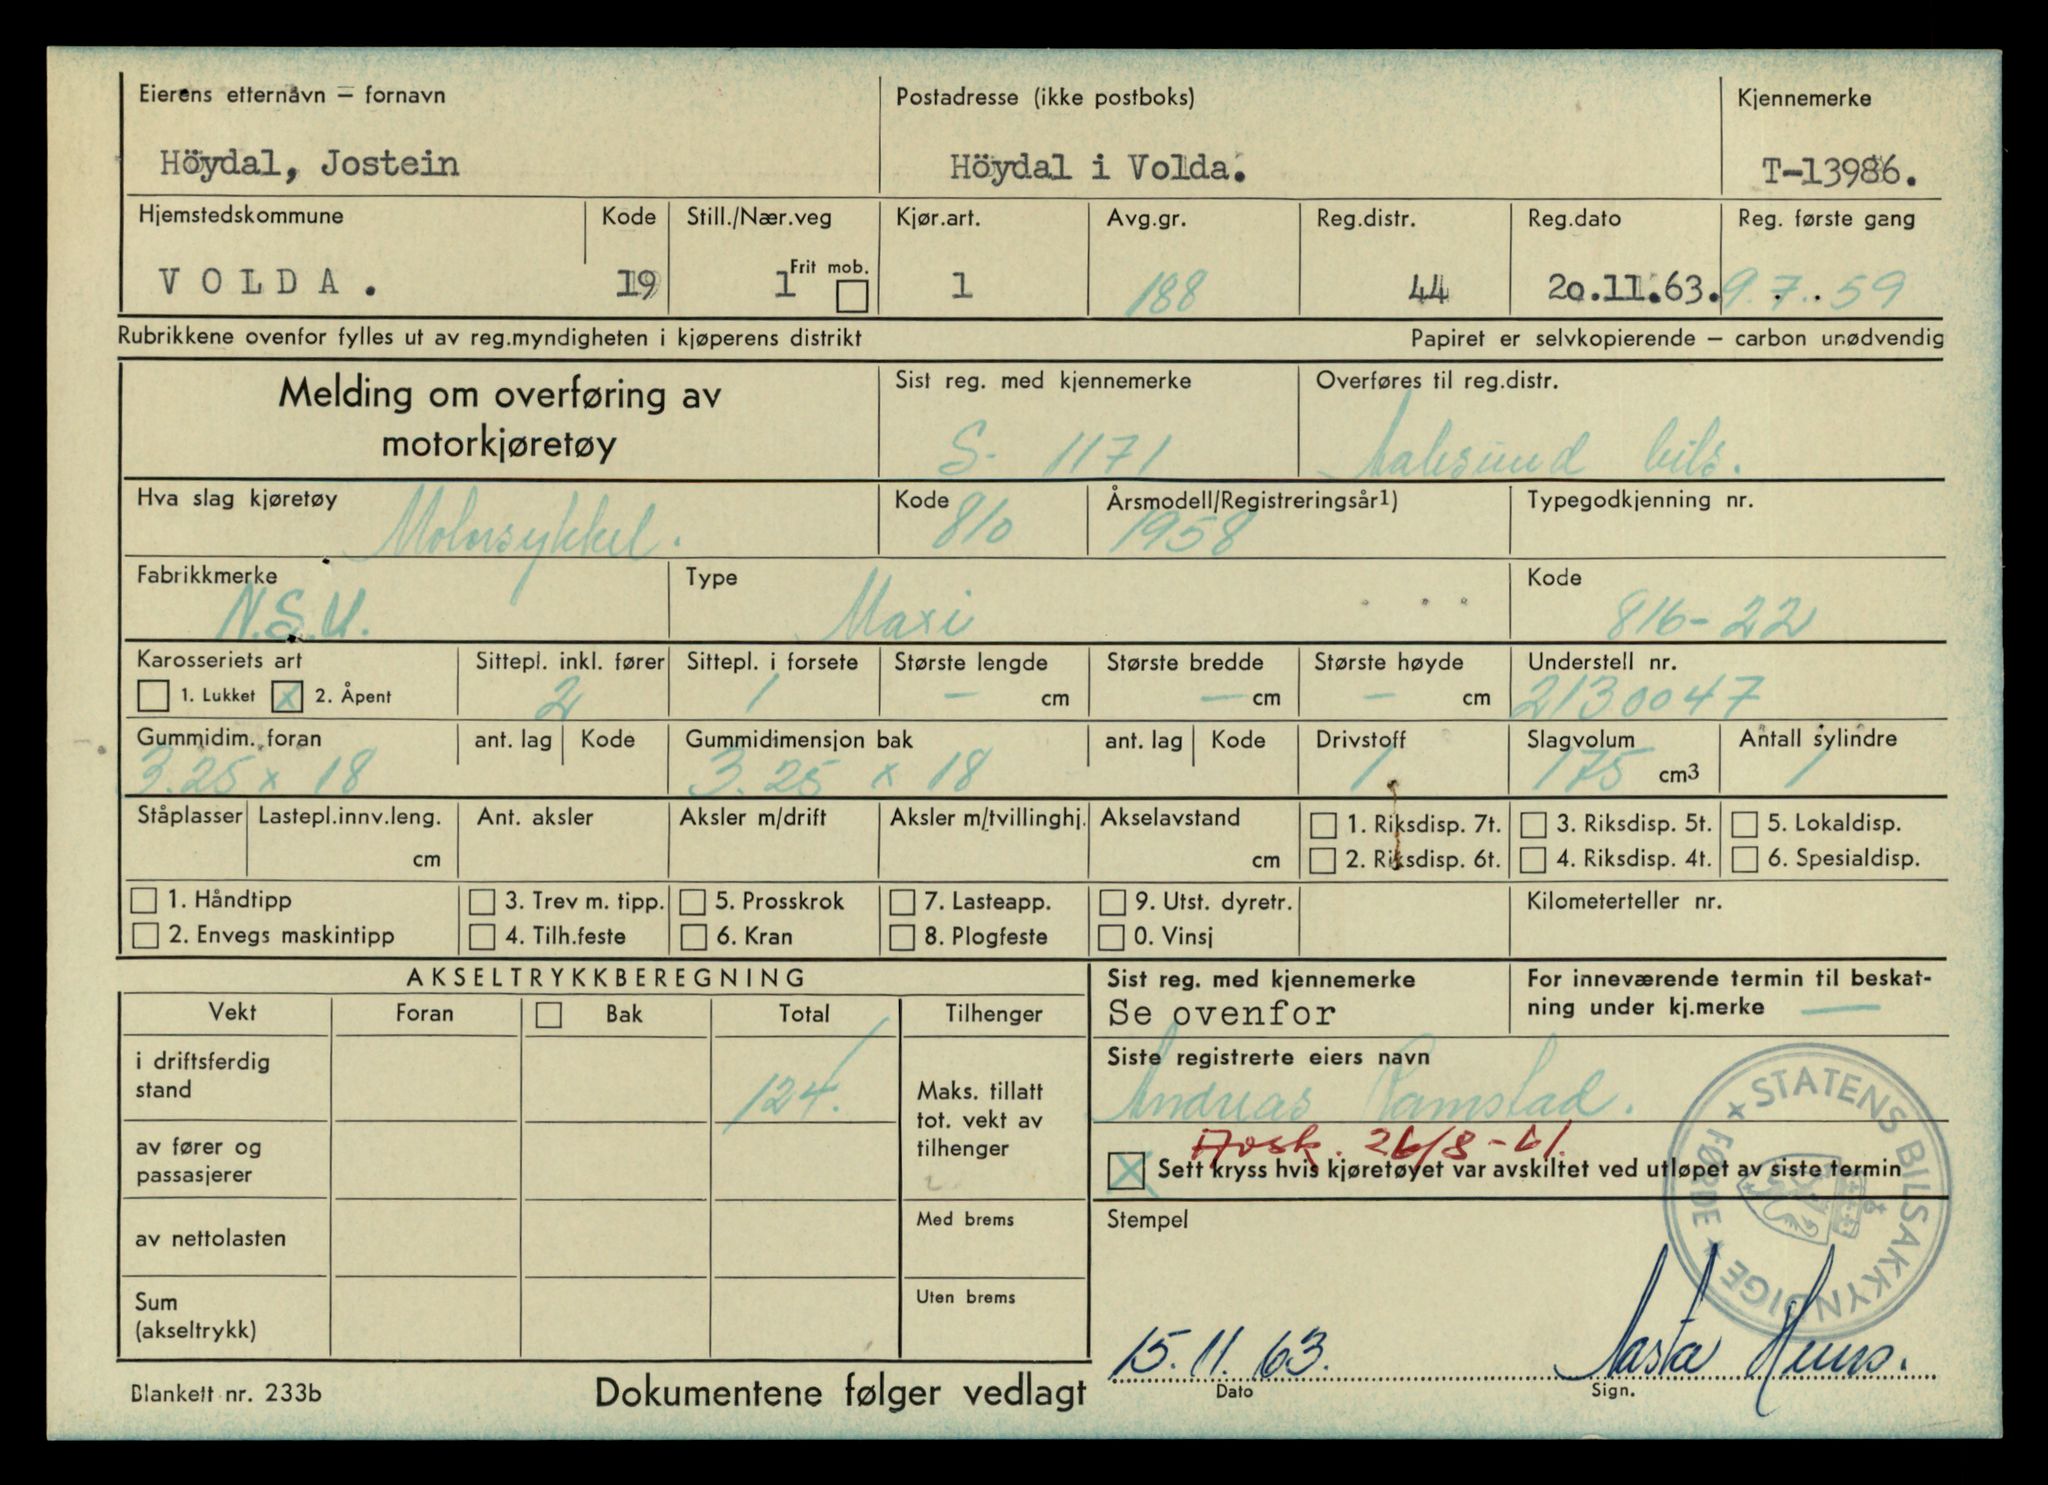 Eierens etternavn – fornavn
Postadresse (ikke postboks)
Kjennemerke
Höydal, Jostein
Höydal i Volda.
T-13986.
Hjemstedskommune
Kode
Still./Nær.veg
Kjør.art.
Avg.gr.
Reg.distr.
Reg.dato
Reg. første gang
VOLDA.
19
1
Frit mob.
1
188
44
20.11.63.
9.7.59
Rubrikkene ovenfor fylles ut av reg.myndigheten i kjøperens distrikt
Papiret er selvkopierende – carbon unødvendig
Melding om overføring av
motorkjøretøy
Sist reg. med kjennemerke
S- 1171
Overføres til reg.distr.
Aalesund bils.
Hva slag kjøretøy
Motorsykkel.
Kode
810
Årsmodell/Registreringsår1)
1958
Typegodkjenning nr.
Fabrikkmerke
N.S.U.
Type
Maxi
Kode
816-22
Karosseriets art
1. Lukket
x 2. Åpent
Sittepl. inkl. fører
2
Sittepl. i forsete
1
Største lengde
– cm
Største bredde
– cm
Største høyde
– cm
Understell nr.
2130047
Gummidim. foran
3.25 x 18
ant. lag
Kode
Gummidimensjon bak
3.25 x 18
ant. lag
Kode
Drivstoff
1
Slagvolum
175 cm3
Antall sylindre
1
Ståplasser
Lastepl.innv.leng.
cm
Ant. aksler
Aksler m/drift
Aksler m/tvillinghj.
Akselavstand
cm
1. Riksdisp. 7t.
2. Riksdisp. 6t.
3. Riksdisp. 5t.
4. Riksdisp. 4t.
5. Lokaldisp.
6. Spesialdisp.
1. Håndtipp
2. Envegs maskintipp
3. Trev m. tipp.
4. Tilh.feste
5. Prosskrok
6. Kran
7. Lasteapp.
8. Plogfeste
9. Utst. dyretr.
0. Vinsj
Kilometerteller nr.
AKSELTRYKKBEREGNING
Vekt
Foran
Bak
Total
Tilhenger
i driftsferdig
stand
124.
av fører og
passasjerer
av nettolasten
Sum
(akseltrykk)
Maks. tillatt
tot. vekt av
tilhenger
Med brems
Uten brems
Sist reg. med kjennemerke
Se ovenfor
For inneværende termin til beskat-
ning under kj.merke –
Siste registrerte eiers navn
Andreas Ramstad.
Avsk. 26/8-61.
x Sett kryss hvis kjøretøyet var avskiltet ved utløpet av siste termin
Stempel
STATENS BILSAKKYNDIGE
FØRDE
15.11.63.
Dato
Aasta
Sign.
Blankett nr. 233b
Dokumentene følger vedlagt